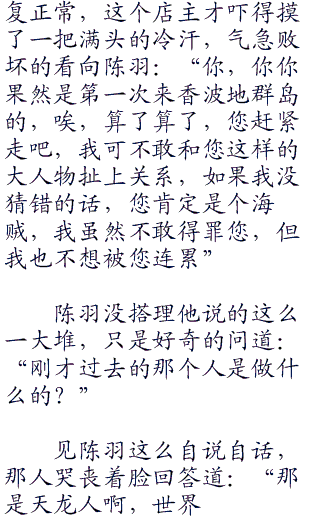 复正常，这个店主才吓得摸
了一把满头的冷汗，气急败
坏的看向陈羽：“你，你你
果然是第一次来香波地群岛
的，唉，算了算了，您赶紧
走吧，我可不敢和您这样的
大人物扯上关系，如果我没
猜错的话，您肯定是个海
贼，我虽然不敢得罪您，但
我也不想被您连累”
陈羽没搭理他说的这么
一大堆，只是好奇的问道：
“刚才过去的那个人是做什
么的？”
见陈羽这么自说自话，
那人哭丧着脸回答道：“那
是天龙人啊，世界